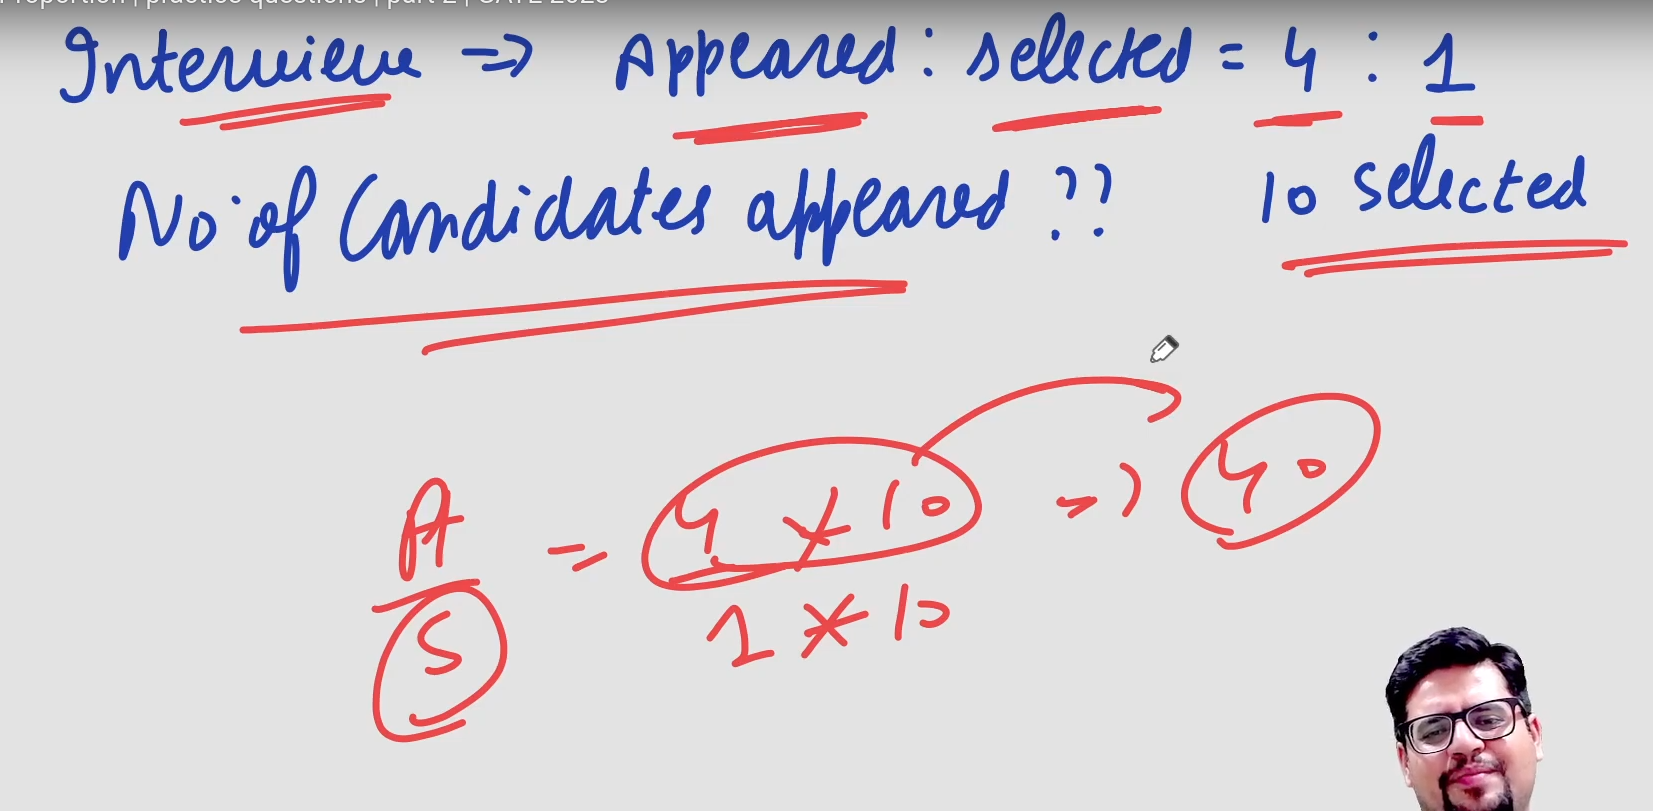 Proportion | practice questions | part 2 | GATE 2023
Interview => Appeared : selected = 4 : 1
No. of Candidates appeared ?? 10 selected
A = 4 * 10 => 40
S 1 * 10